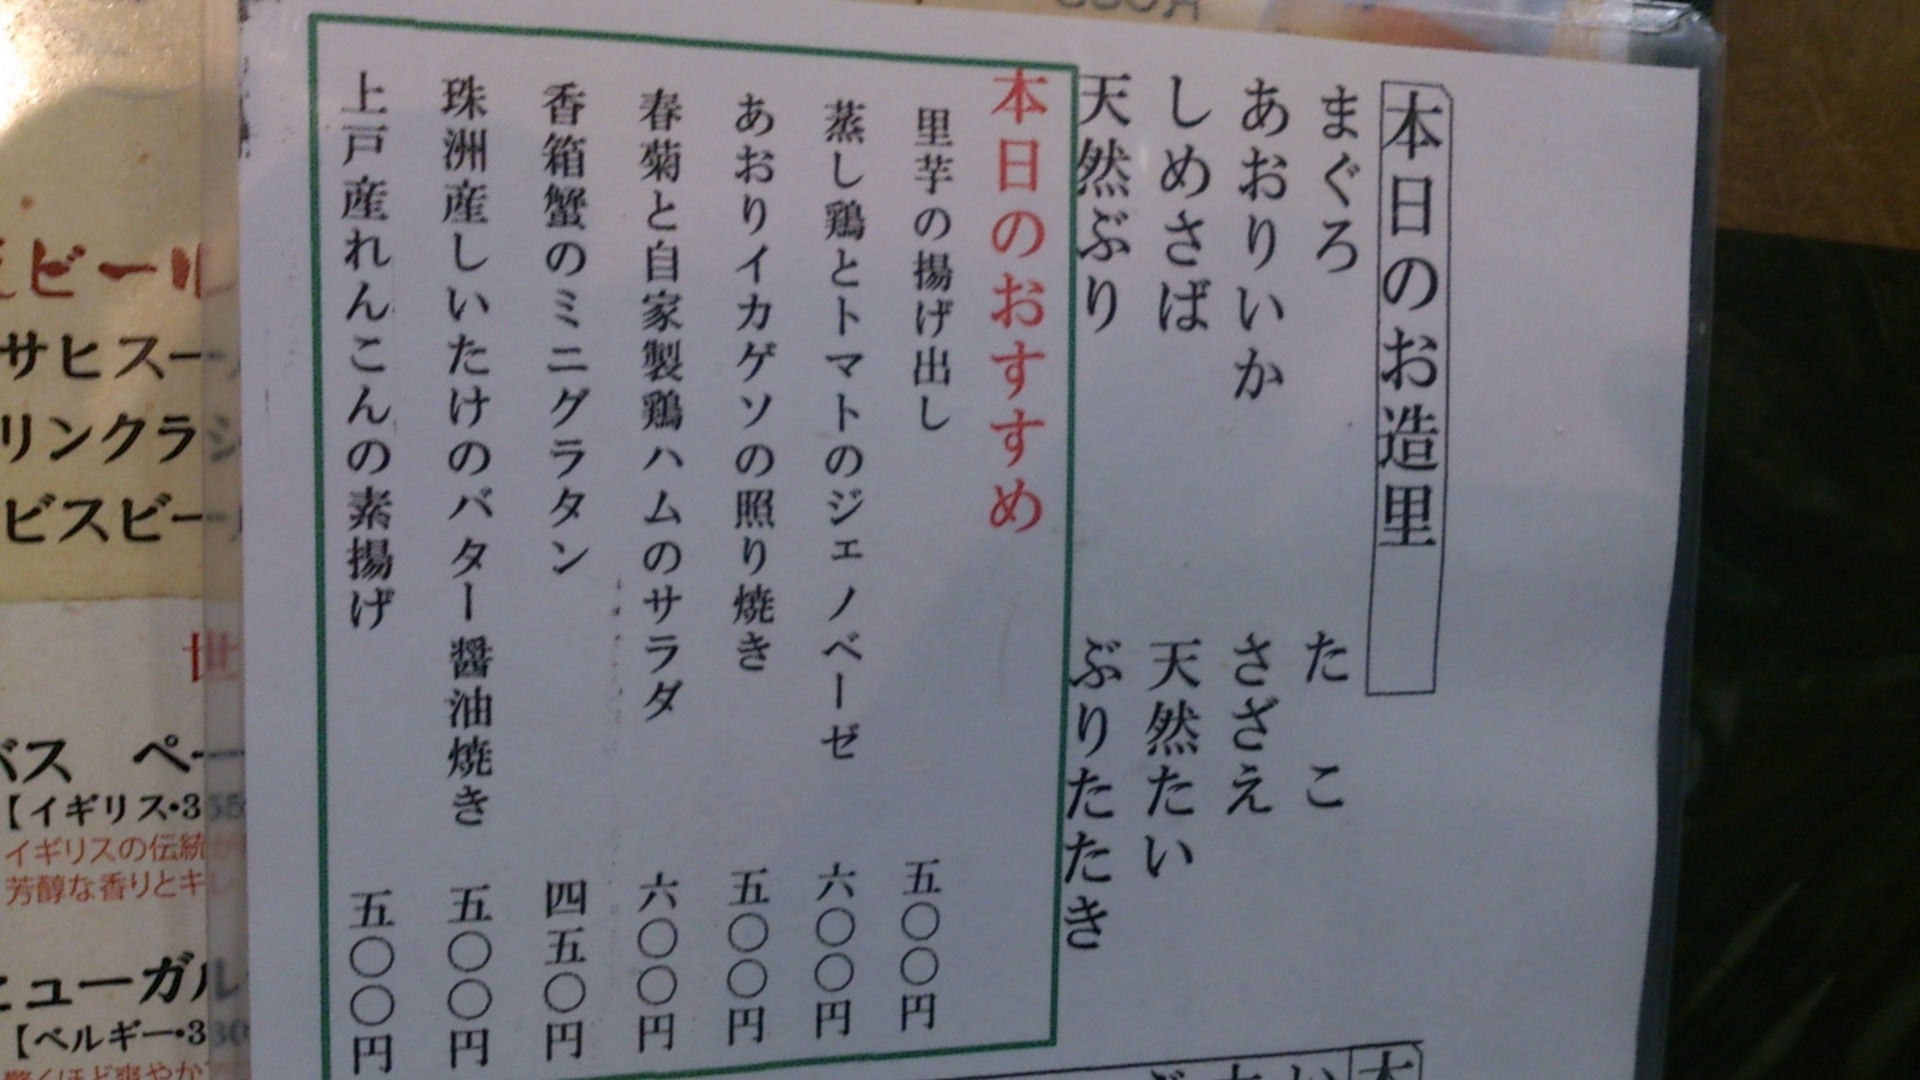 本日のお造里
まぐろ
たこ
あおりいか
さざえ
しめさば
天然たい
天然ぶり
ぶりたたき
本日のおすすめ
里芋の揚げ出し 五〇〇円
蒸し鶏とトマトのジェノベーゼ 六〇〇円
あおりイカゲソの照り焼き 五〇〇円
春菊と自家製鶏ハムのサラダ 六〇〇円
香箱蟹のミニグラタン 四五〇円
珠洲産しいたけのバター醤油焼き 五〇〇円
上戸産れんこんの素揚げ 五〇〇円
ビール
サヒスー
リンクラシ
ビスビー
世
バス ペー
【イギリス・3
イギリスの伝統
芳醇な香りとキレ
ューガル
【ベルギー・3
驚くほど爽やか